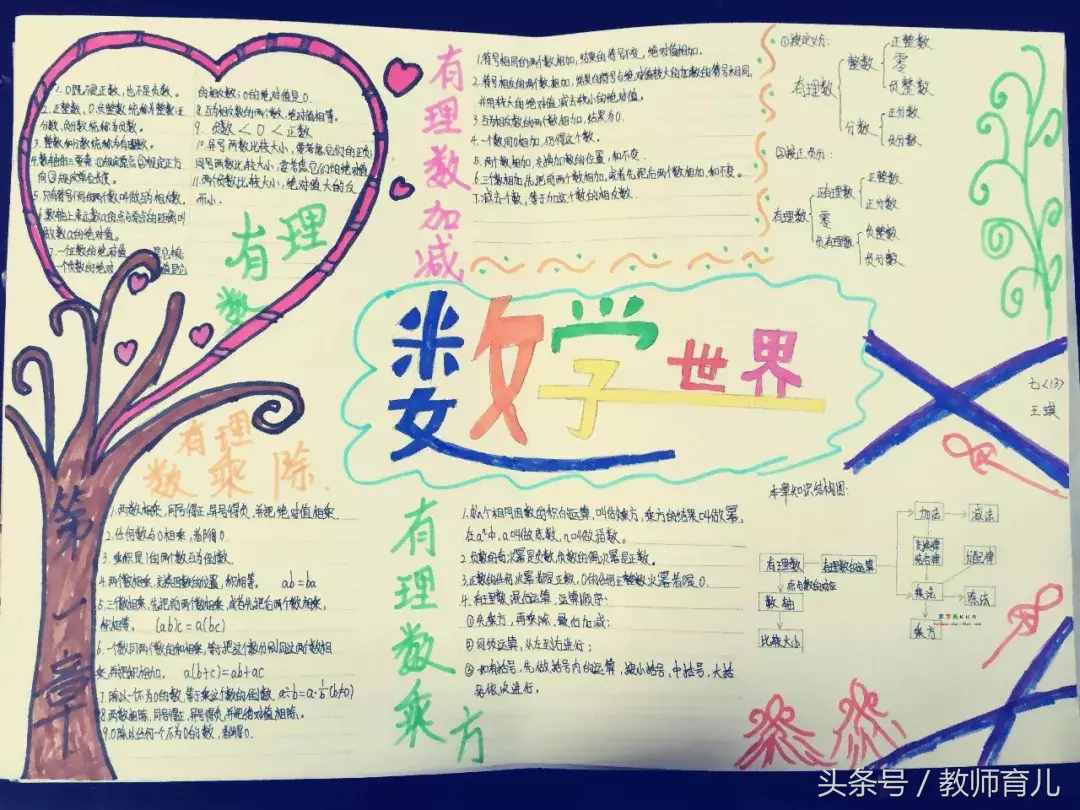 数学世界
第一章
有理数
1. 0既不是正数，也不是负数。
2. 正整数，0，负整数统称为整数，正
分数，负分数统称为负数。
3. 整数和分数统称为有理数。
5. 只有符号不同的两个数叫做互为相反数。
6. 数轴上表示数a的点与原点的距离叫
做数a的绝对值。
的相反数；0的绝对值是0.
8. 互为相反数的两个数，绝对值相等。
9. 负数<0<正数
10. 异号两数比较大小，要考虑它们的正负；
同号两数比较大小，要考虑它们的绝对值
11. 两个负数比较大小，绝对值大的反
而小.
有理数加减
1. 符号相同的两个数相加，结果的符号不变，绝对值相加.
2. 符号相反的两个数相加，结果的符号与绝对值较大的加数的符号相同，
并用较大的绝对值减去较小的绝对值.
3. 互为相反数的两个数相加，结果为0.
4. 一个数同0相加，仍得这个数.
5. 两个数相加，交换加数的位置，和不变.
6. 三个数相加，先把前两个数相加，或者先把后两个数相加，和不变。
7. 减去个数，等于加这个数的相反数.
①按定义分：
有理数
整数
正整数
零
负整数
分数
正分数
负分数
②按正负分：
有理数
正有理数
正整数
正分数
零
负有理数
负整数
负分数
七(13)
王瑛
有理数乘除
1. 两数相乘，同号得正，异号得负，并把绝对值相乘
2. 任何数与0相乘，都得0.
3. 乘积是1的两个数互为倒数.
4. 两个数相乘，交换因数的位置，积相等。 ab=ba
5. 三个数相乘，先把前两个数相乘，或者先把后两个数相乘，
积相等。 (ab)c=a(bc)
6. 一个数同两个数的和相乘，等于把这个数分别同这两个数相
乘，再把积相加. a(b+c)=ab+ac
7. 除以一个不为0的数，等于乘这个数的倒数. a÷b=a·1/b(b≠0)
8. 两数相除，同号得正，异号得负，并把绝对值相除.
9. 0除以任何一个不为0的数，都得0.
有理数乘方
1. 求n个相同因数的积的运算，叫做乘方，乘方的结果叫做幂，
在aⁿ中，a叫做底数，n叫做指数。
2. 负数的奇次幂是负数，负数的偶次幂是正数。
3. 正数的任何次幂都是正数，0的任何正整数次幂都是0.
4. 有理数混合运算，运算顺序：
①先乘方，再乘除，最后加减；
②同级运算，从左到右进行；
③如有括号，先做括号内的运算，按小括号，中括号，大括
号依次进行。
本章知识结构图：
有理数
有理数的运算
数轴
比较大小
加法
减法
交换律
结合律
分配律
乘法
除法
乘方
头条号 / 教师育儿